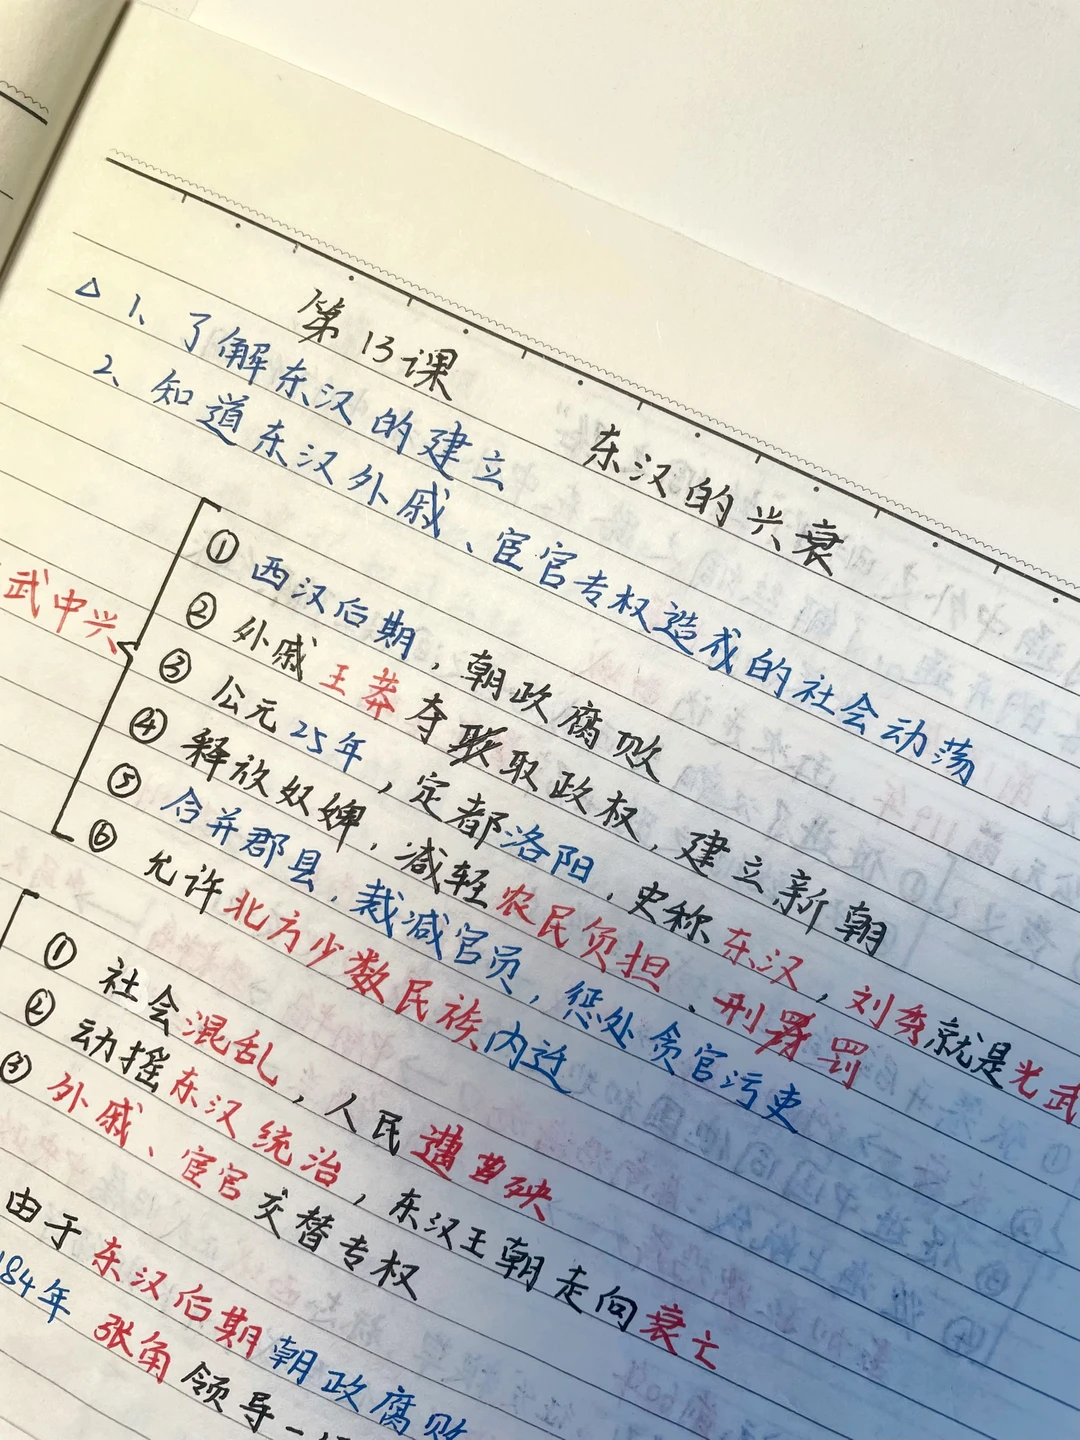 第13课 东汉的兴衰
△1、了解东汉的建立
2、知道东汉外戚、宦官专权造成的社会动荡
武中兴
① 西汉后期，朝政腐败
② 外戚王莽夺取政权，建立新朝
③ 公元25年，定都洛阳，史称东汉，刘秀就是光武
④ 释放奴婢，减轻农民负担、刑罚
⑤ 合并郡县，裁减官员，惩处贪官污吏
⑥ 允许北方少数民族内迁
① 社会混乱，人民遭殃
② 动摇东汉统治，东汉王朝走向衰亡
③ 外戚、宦官交替专权
由于东汉后期朝政腐败
184年 张角领导一